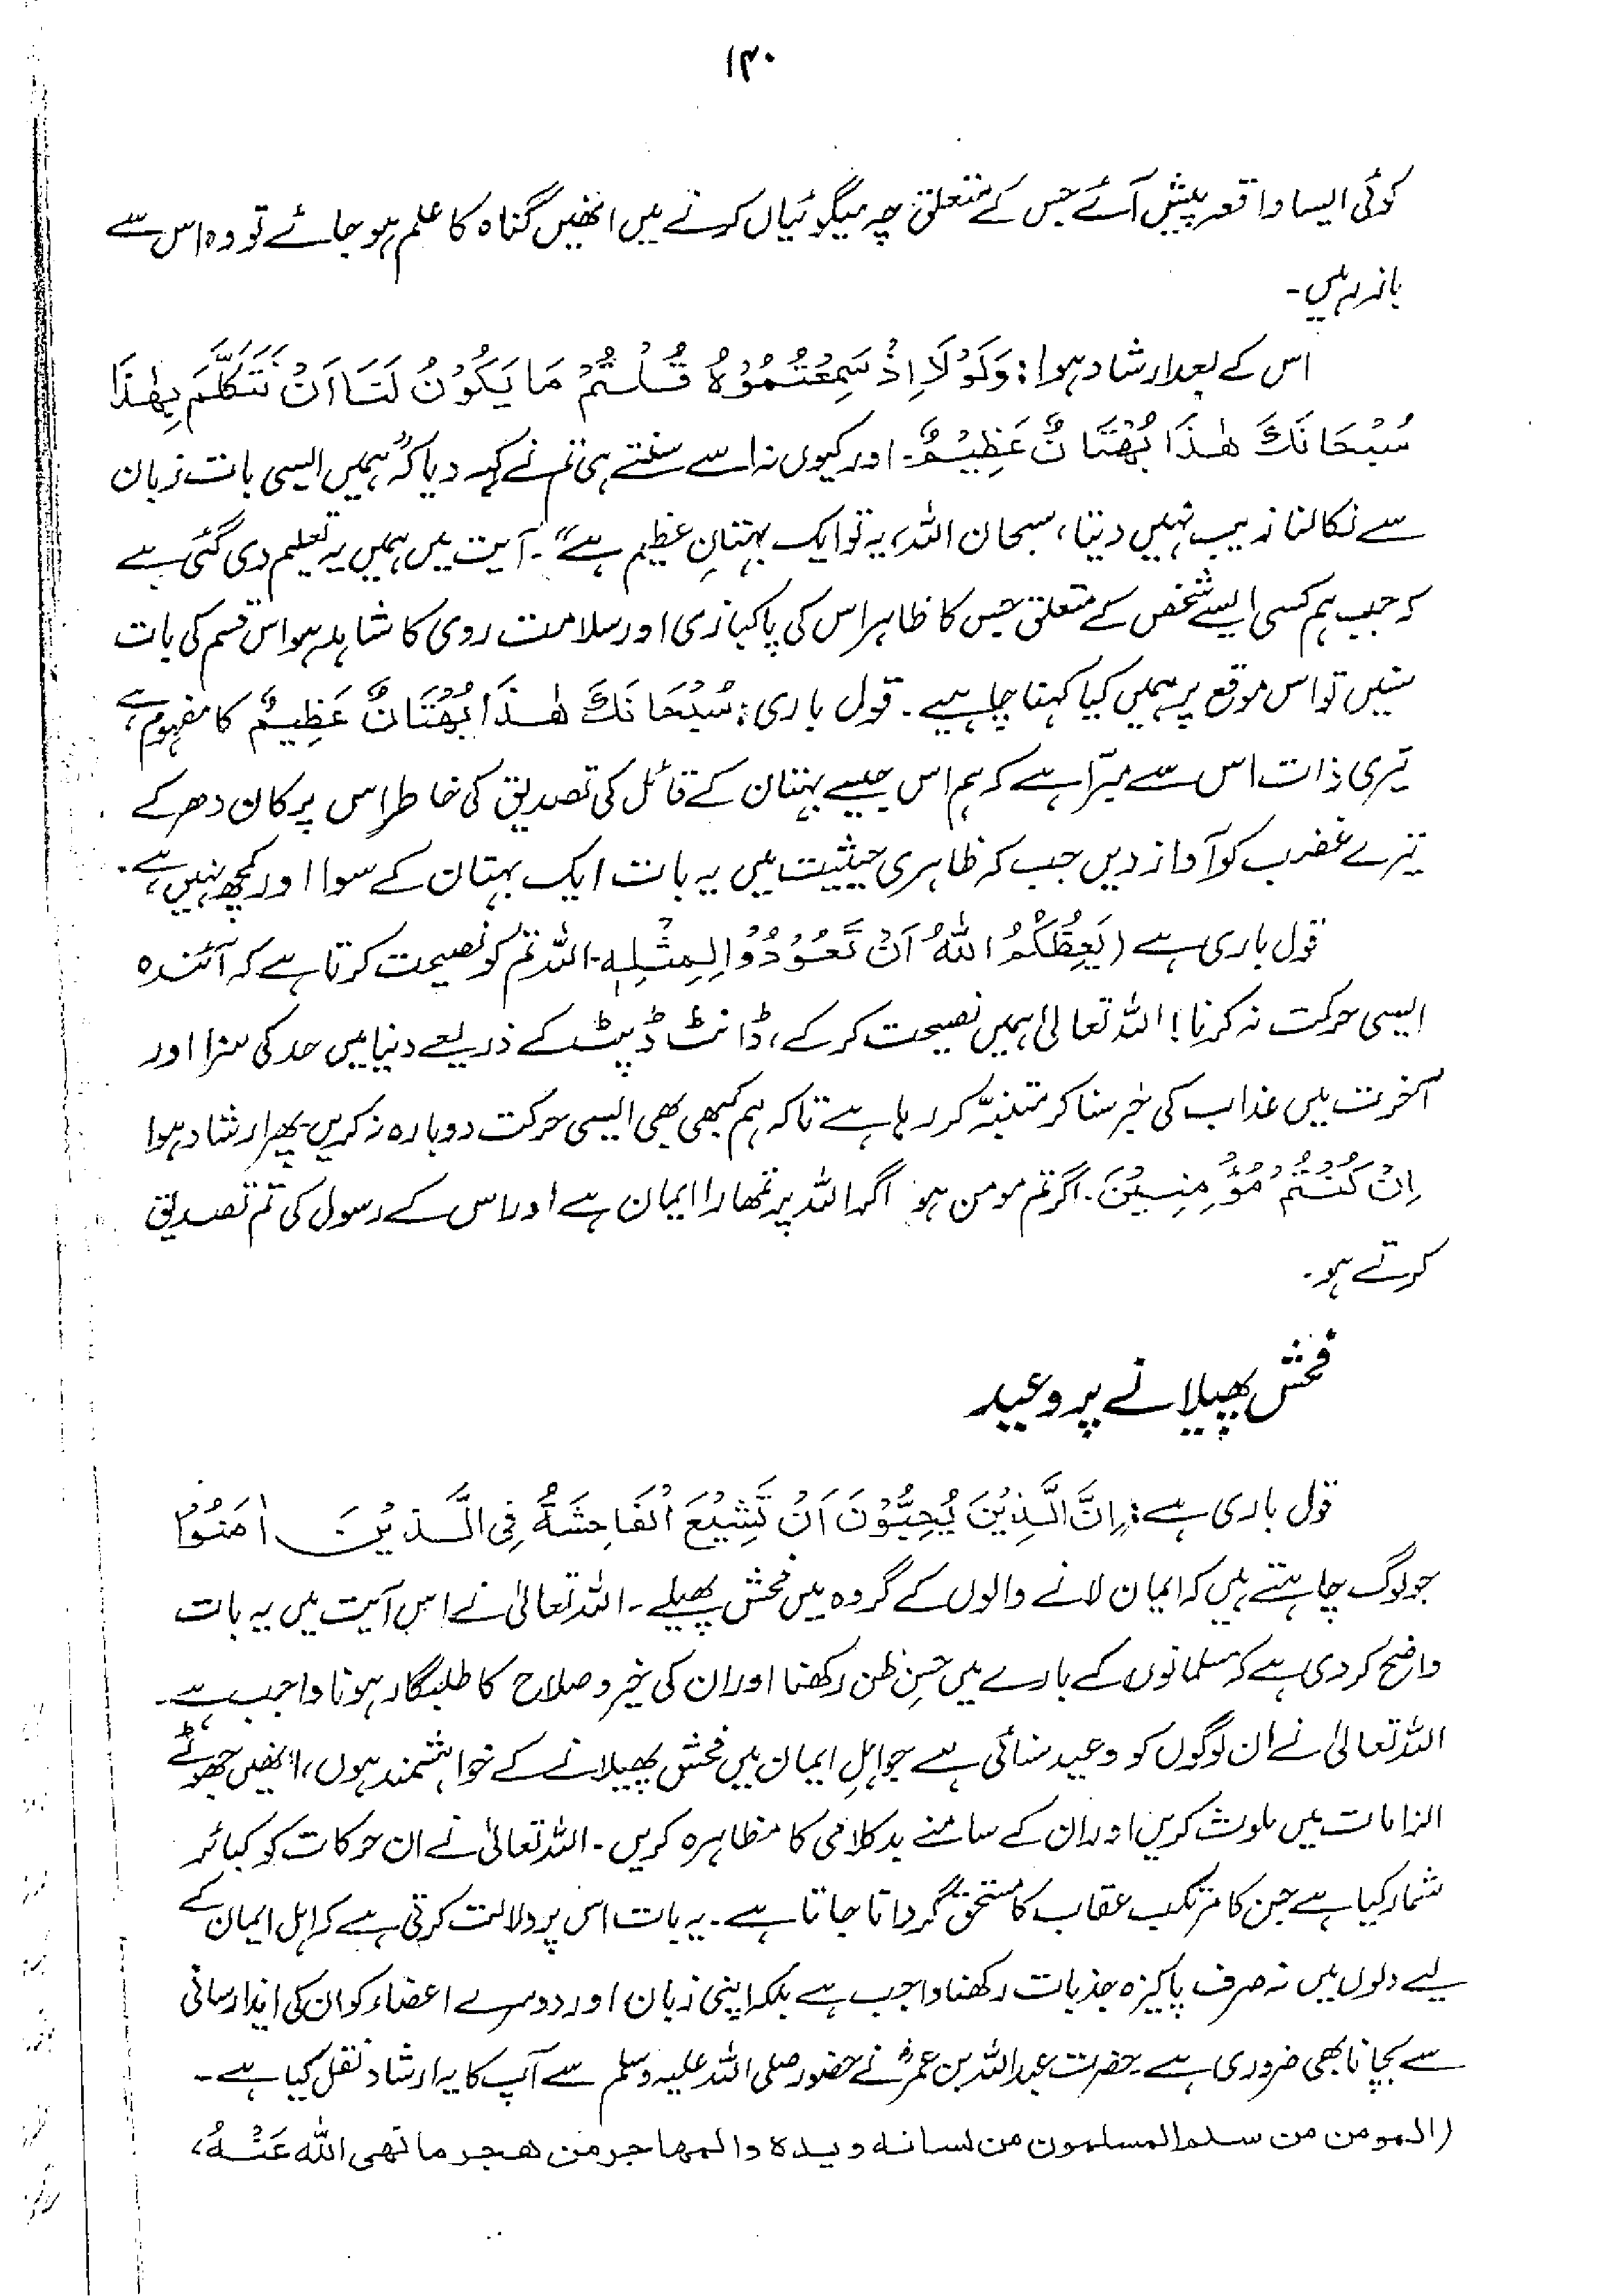 ۱۴۰
کوئی ایسا واقعہ پیش آئے جس کے متعلق چہ میگوئیاں کرنے میں انھیں گناہ کا علم ہو جائے تو وہ اس سے
باز رہیں۔
اس کے بعد ارشاد ہوا: وَلَوْلَا اِذْ سَمِعْتُمُوْهُ قُلْتُمْ مَا يَكُوْنُ لَنَا اَنْ نَتَكَلَّمَ بِهٰذَا
سُبْحَانَكَ هٰذَا بُهْتَانٌ عَظِيْمٌ۔ اور کیوں نہ اسے سنتے ہی تم نے کہہ دیا کہ "ہمیں ایسی بات زبان
سے نکالنا زیب نہیں دیتا، سبحان اللہ، یہ تو ایک بہتانِ عظیم ہے"۔ آیت میں ہمیں یہ تعلیم دی گئی ہے
کہ جب ہم کسی ایسے شخص کے متعلق جس کا ظاہر اس کی پاکبازی اور سلامت روی کا شاہد ہو اس قسم کی بات
سنیں تو اس موقع پر ہمیں کیا کہنا چاہیے۔ قول باری: سُبْحَانَكَ هٰذَا بُهْتَانٌ عَظِيْمٌ کا مفہوم ہے
تیری ذات اس سے مبرّا ہے کہ ہم اس جیسے بہتان کے قائل کی تصدیق کی خاطر اس پر کان دھر کے
تیرے غضب کو آواز دیں جب کہ ظاہری حیثیت میں یہ بات ایک بہتان کے سوا اور کچھ نہیں ہے۔
قول باری ہے (يَعِظُكُمُ اللّٰهُ اَنْ تَعُوْدُوْا لِمِثْلِهٖ۔ اللہ تم کو نصیحت کرتا ہے کہ آئندہ
ایسی حرکت نہ کرنا! اللہ تعالیٰ ہمیں نصیحت کر کے، ڈانٹ ڈپٹ کے ذریعے دنیا میں حد کی سزا اور
آخرت میں عذاب کی خبر سنا کر متنبّہ کر رہا ہے تاکہ ہم کبھی بھی ایسی حرکت دوبارہ نہ کریں۔ پھر ارشاد ہوا
اِنْ كُنْتُمْ مُؤْمِنِيْنَ۔ اگر تم مومن ہو اگر اللہ پر تمھارا ایمان ہے اور اس کے رسول کی تم تصدیق
کرتے ہو۔
فحش پھیلانے پر وعید
قول باری ہے: اِنَّ الَّذِيْنَ يُحِبُّوْنَ اَنْ تَشِيْعَ الْفَاحِشَةُ فِی الَّذِيْنَ اٰمَنُوْا
جو لوگ چاہتے ہیں کہ ایمان لانے والوں کے گروہ میں فحش پھیلے۔ اللہ تعالیٰ نے اس آیت میں یہ بات
واضح کر دی ہے کہ مسلمانوں کے بارے میں حسنِ ظن رکھنا اور ان کی خیر و صلاح کا طلبگار ہونا واجب ہے۔
اللہ تعالیٰ نے ان لوگوں کو وعید سنائی ہے جو اہلِ ایمان میں فحش پھیلانے کے خواہشمند ہوں، انھیں جھوٹے
الزامات میں ملوث کریں اور ان کے سامنے بدکلامی کا مظاہرہ کریں۔ اللہ تعالیٰ نے ان حرکات کو کبائر
شمار کیا ہے جن کا مرتکب عقاب کا مستحق گردانا جاتا ہے۔ یہ بات اس پر دلالت کرتی ہے کہ اہل ایمان کے
لیے دلوں میں نہ صرف پاکیزہ جذبات رکھنا واجب ہے بلکہ اپنی زبان اور دوسرے اعضاء کو ان کی ایذا رسانی
سے بچانا بھی ضروری ہے۔ حضرت عبداللہ بن عمرؓ نے حضور صلی اللہ علیہ وسلم سے آپ کا یہ ارشاد نقل کیا ہے۔
(المومن من سلم المسلمون من لسانه ويده والمهاجر من هجر ما نهى الله عَنْهُ،